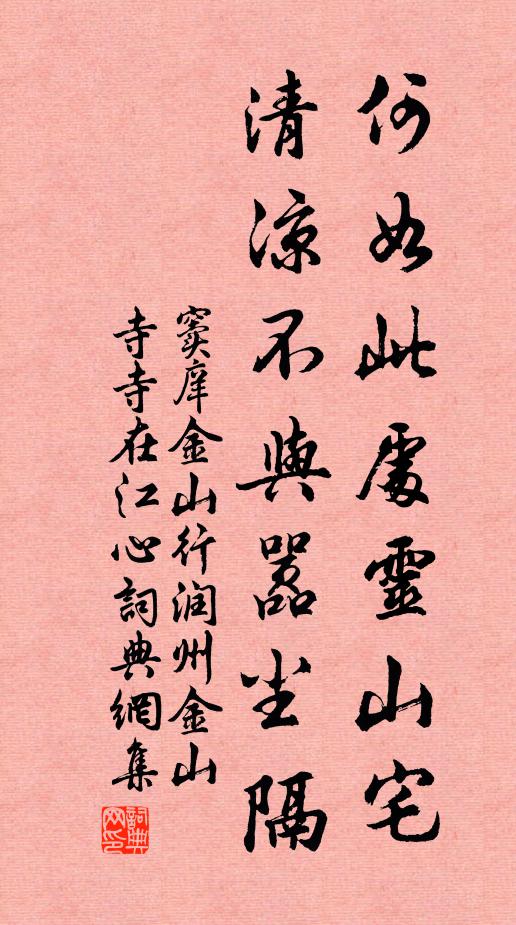 何如此處靈山宅
清涼不與囂尘隔
窦庠金山行润州金山
寺寺在江心詞典網集
詞典
网印